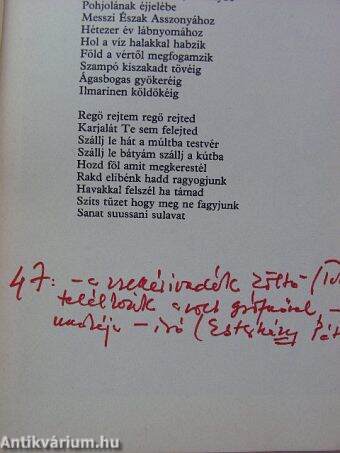 Pohjolának éjjelébe
Messzi Észak Asszonyához
Hétezer év lábnyomához
Hol a víz halakkal habzik
Föld a vértől megfogamzik
Szampó kiszakadt tövéig
Ágasbogas gyökeréig
Ilmarinen köldökéig
Regö rejtem regö rejted
Karjalát Te sem felejted
Szállj le hát a múltba testvér
Szállj le bátyám szállj a kútba
Hozd föl amit megkerestél
Rakd elibénk hadd ragyogjunk
Havakkal felszél ha támad
Szíts tüzet hogy meg ne fagyjunk
Sanat suussani sulavat
47: - a költő - (
a volt grófnőtől, -
- író (Esterházy Pét
Antikvárium.hu